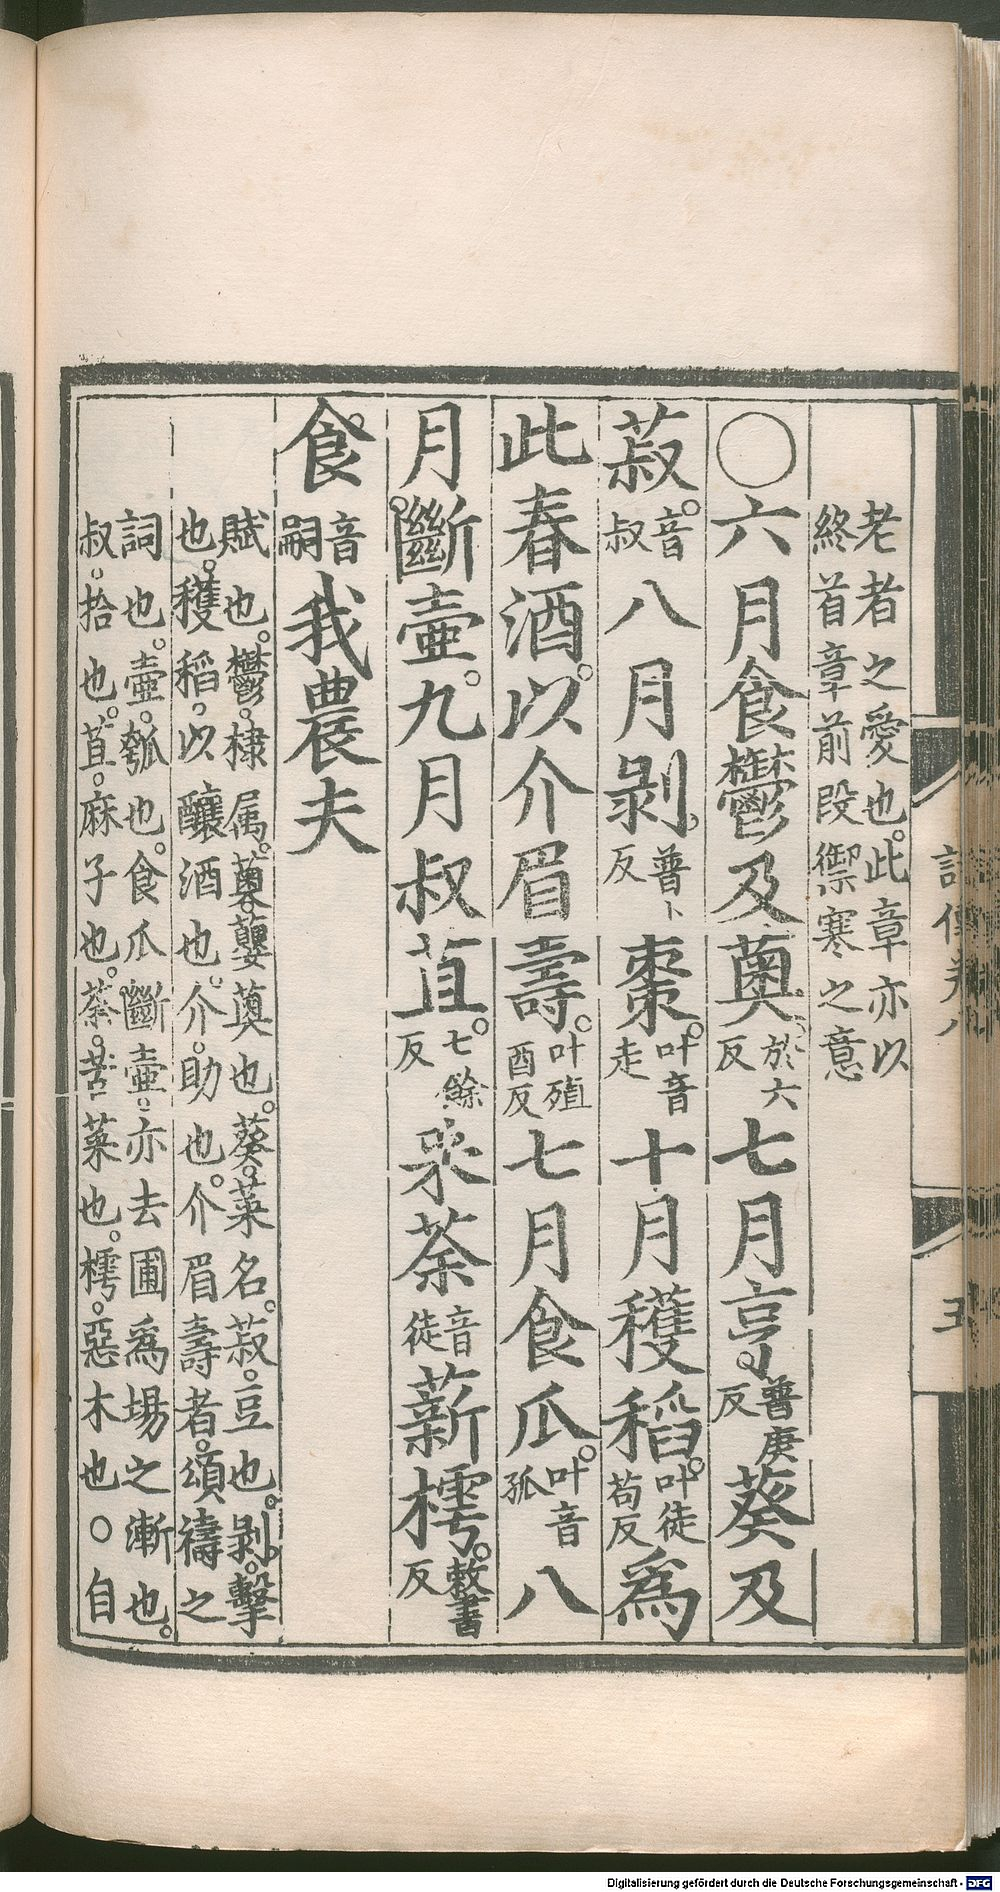 老者之愛也。此章亦以
終首章前段禦寒之意
○六月食鬱及薁於六反七月亨普庚反葵及
菽。音叔八月剝普卜反棗。叶音走十月穫稻。叶徒苟反爲
此春酒。以介眉壽。叶殖酉反七月食瓜。叶音孤八
月斷壺。九月叔苴。七餘反采荼音徒薪樗。敕書反
食音嗣我農夫
賦也。鬱。棣属。薁。蘡薁也。葵。菜名。菽。豆也。剝。擊
也。穫稻。以釀酒也。介。助也。介眉壽者。頌禱之
詞也。壺。瓠也。食瓜斷壺。亦去圃爲場之漸也。
叔。拾也。苴。麻子也。荼。苦菜也。樗。惡木也○自
五
Digitalisierung gefördert durch die Deutsche Forschungsgemeinschaft - DFG